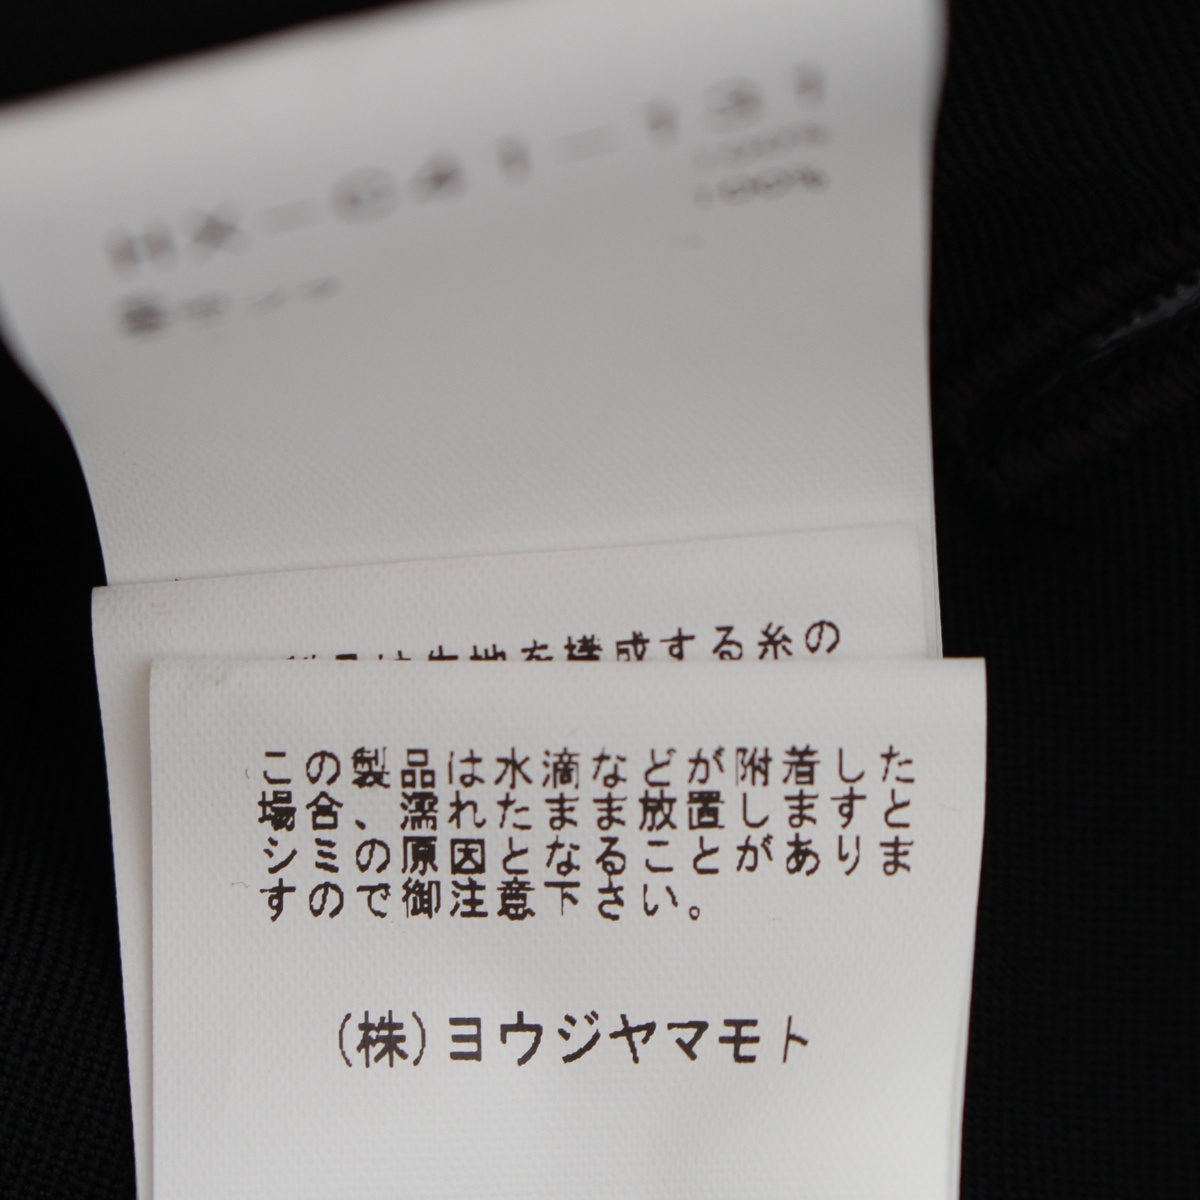 100%
100%
を構成する糸の
この製品は水滴などが附着した
場合、濡れたまま放置しますと
シミの原因となることがありま
すので御注意下さい。
(株)ヨウジヤマモト